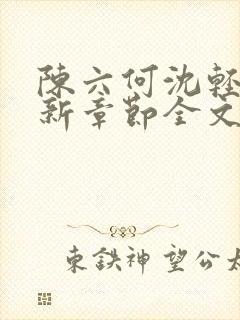 陳六何沈輕
新章節全文
東鉄神望公太